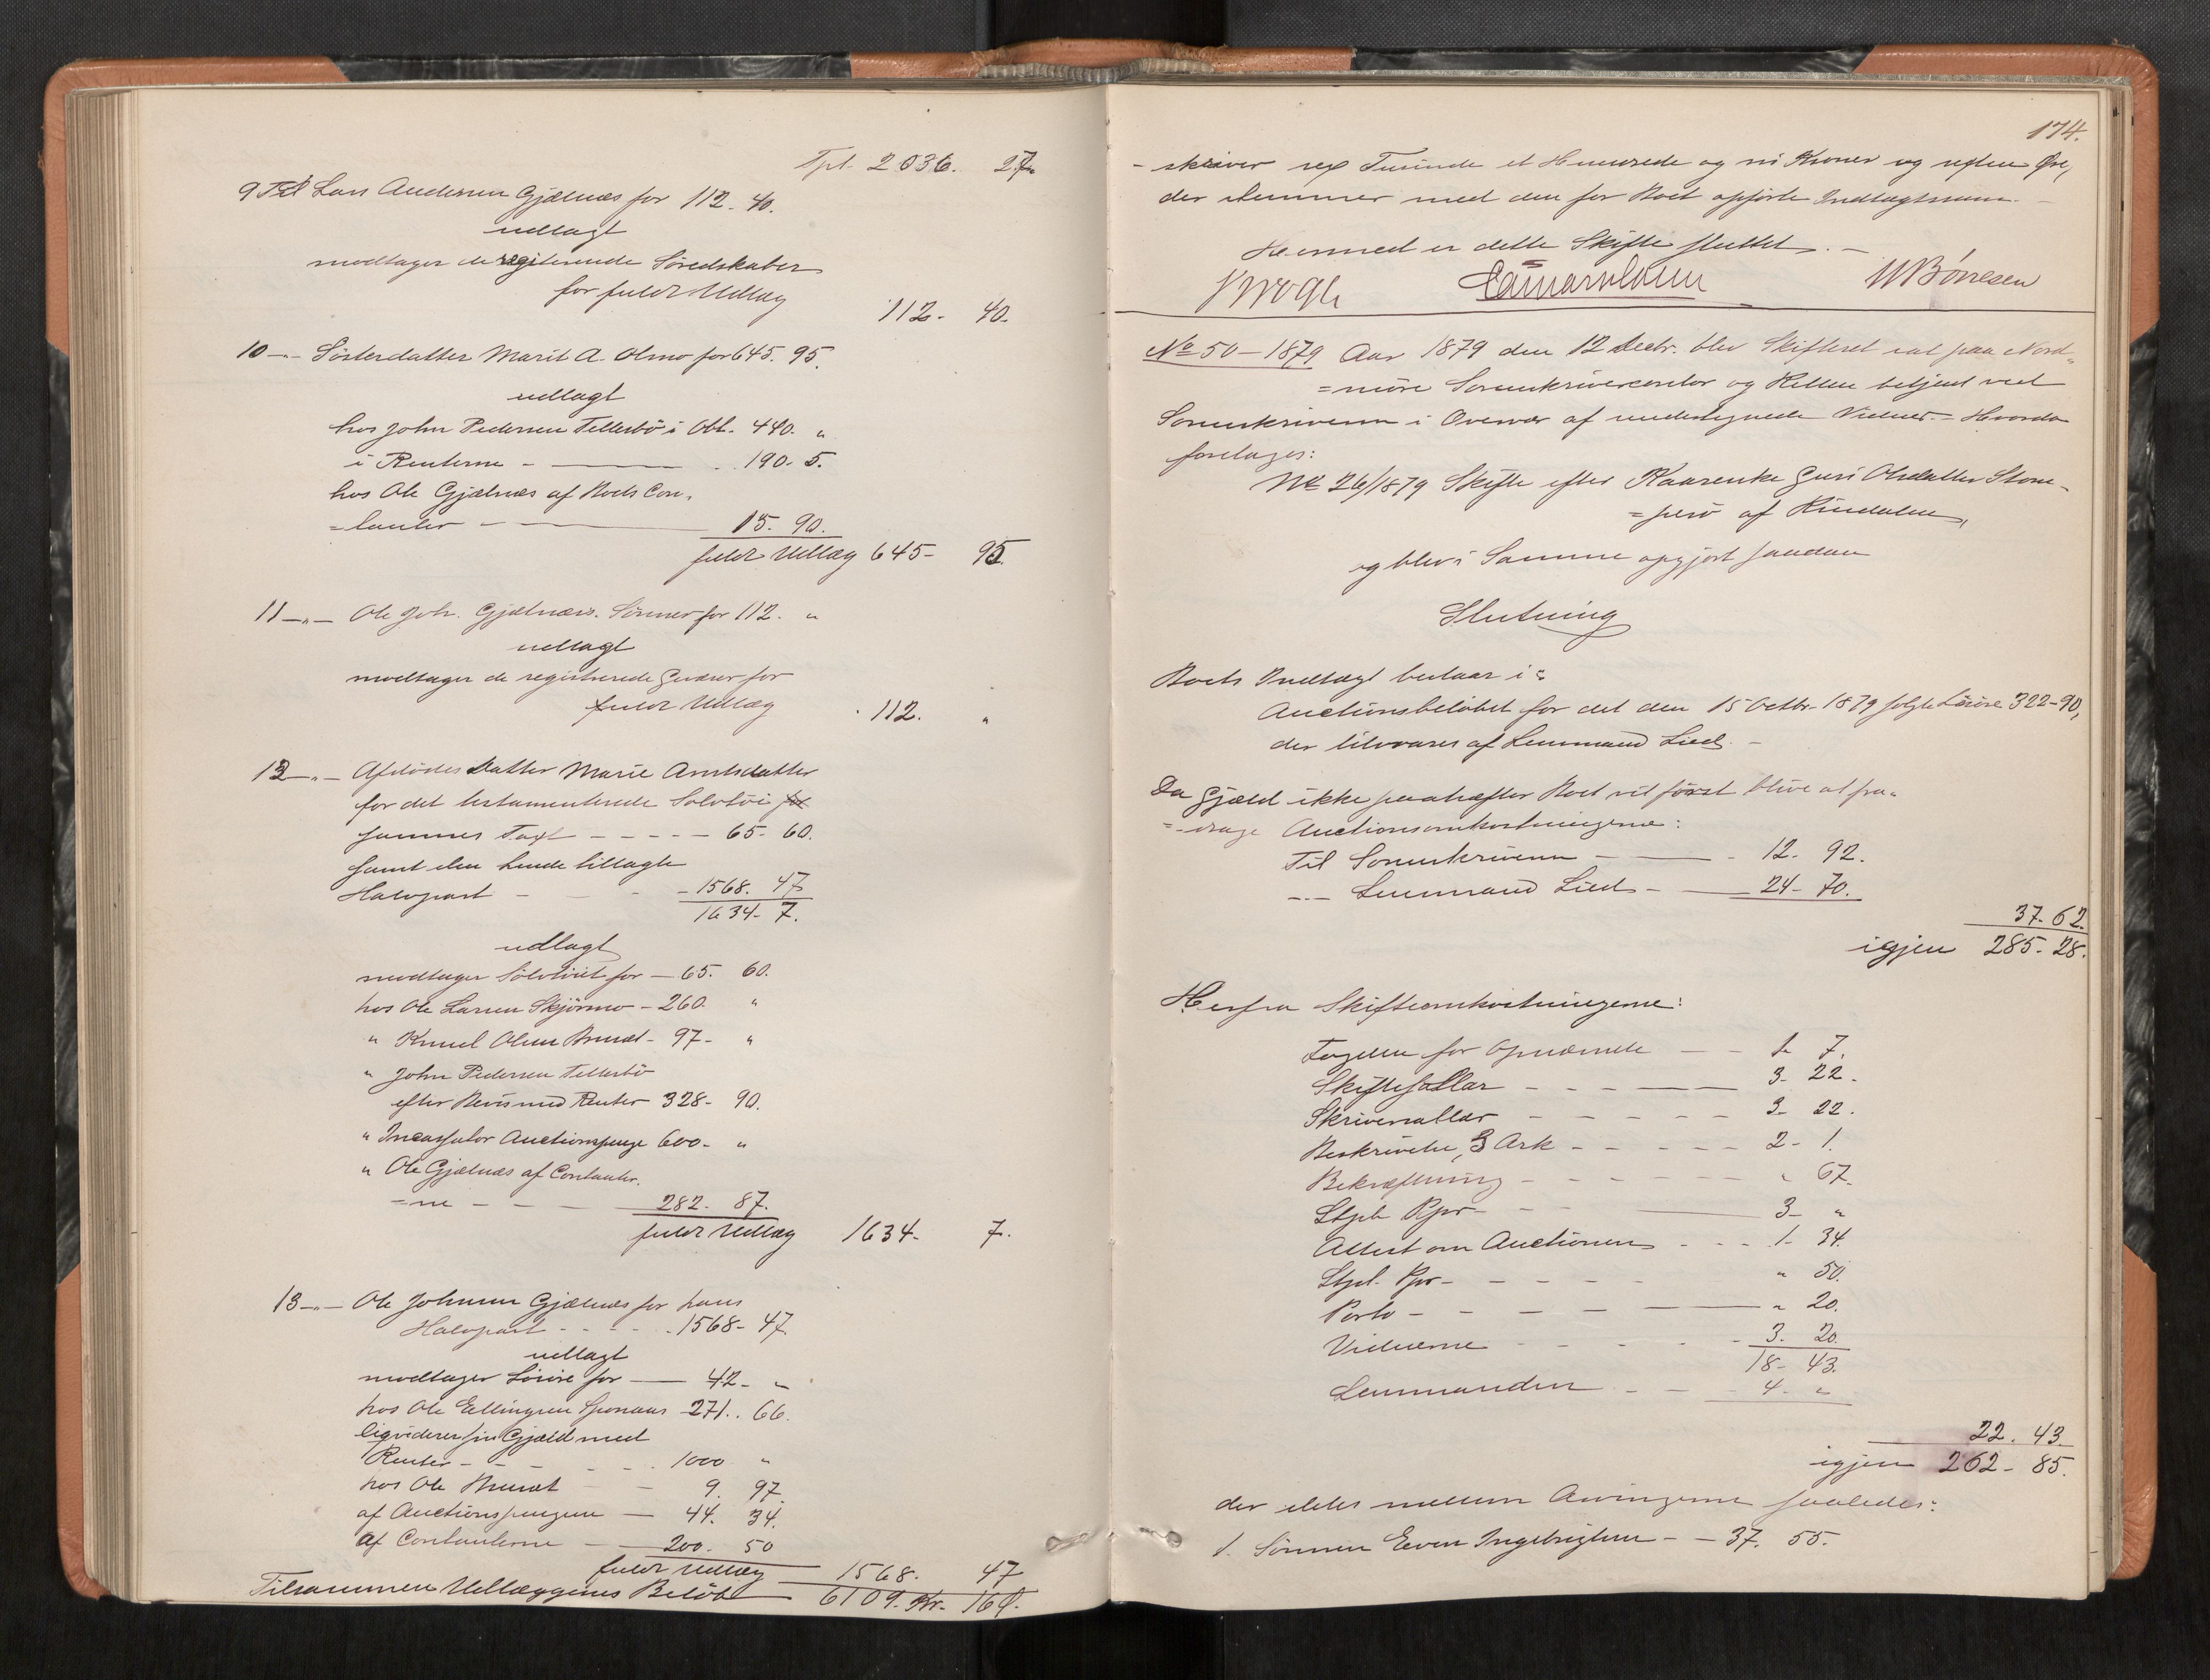 Tpt. 2036. 27.
9 Til Lars Andersen Gjælnæs for 112. 40.
udlagt
modtager de registerede Søredskaber
for fuldt Udlæg 112. 40.
10 -"- Søsterdatter Marit A. Olmo for 645. 95.
udlagt
hos John Pedersen Tellesbø i Obl. 440. "
i Renterne - 190. 5.
hos Ole Gjælnæs af Boets Con-
=tanter - 15. 90.
fuldt Udlæg 645- 95.
11 -"- Ole Joh. Gjælnæs. Sønner for 112. "
udlagt
modtager de registrerede Geværer for
fuldt Udlæg 112. "
12 -"- Afdødes Datter Marie Arntsdatter
for det testamenterede Sølvtøi for
sammes Taxt - 65- 60.
samt den hende tillagte
Halvpart - 1568. 47
1634- 7.
udlagt
modtager Sølvtøiet for - 65. 60.
hos Ole Larsen Skjørmo - 260. "
" Knud Olsen Brunæt - 97- "
" John Pedersen Tellesbø
efter Bevis med Renter 328- 90.
" Incassator Auctionspenge 600- "
" Ole Gjælnæs af Contanter-
=ne - 282- 87.
fuldt Udlæg 1634- 7.
13 -"- Ole Johnsen Gjælnæs for hans
Halvpart - 1568- 47
udlagt
modtager Løsøre for - 42- "
hos Ole Ellingsen Sponaas 271. 66.
liqviderer sin Gjæld med
Renter - 1000 "
hos Ole Brunæt - 9. 97
af Auctionspengene - 44. 34.
af Contanterne - 200. 50
fuldt Udlæg 1568. 47
Tilsammen Udlæggenes Beløb - 6109. Kr. 16 Ø.
174.
- skriver sex Tusinde et Hundrede og ni Kroner og sexten Øre,
der stemmer med den for Boet opførte Indtægtssum. -
Hermed er dette Skifte sluttet. -
M Børresen
No 50-1879 Aar 1879 den 12 Decbr. blev Skifteret sat paa Nord-
=møre Sorenskrivercontor og Retten betjent ved
Sorenskriveren i Overvær af undertegnede Vidner. - Hvorda
foretoges:
No 26/1879 Skifte efter Kaarenke Guri Olsdatter Stom-
=perø af Rindalen,
og blev i Samme opgjort saadan
Slutning
Boets Indtægt bestaar i:
Auctionsbeløbet for det den 15 Octbr. 1879 solgte Løsøre 322-90,
der tilsvares af Lensmand Lied. -
Da Gjæld ikke paahæfter Boet vil først blive at fra-
=drage Auctionsomkostningerne:
Til Sorenskriveren - 12. 92.
-"- Lensmand Lied - 24- 70.
37. 62.
igjen 285- 28.
Herfra Skifteomkostningerne:
Tagelsen for Opnævnelse - 1. 7.
Skiftesallar - 3- 22.
Skriversallar - 3- 22.
Beskrivelse, 3 Ark - 2- 1.
Bekræftning - " 67.
Stpl. Ppr - 3- "
Attest om Auctionen - 1- 34.
Stpl. Ppr - " 50.
Porto - " 20.
Vidnerne - 3. 20.
18- 43.
Lensmanden - 4. "
22. 43.
igjen 262- 85.
der deles mellem Arvingerne saaledes:
1. Sønnen Even Ingebrigtsen - 37. 55.